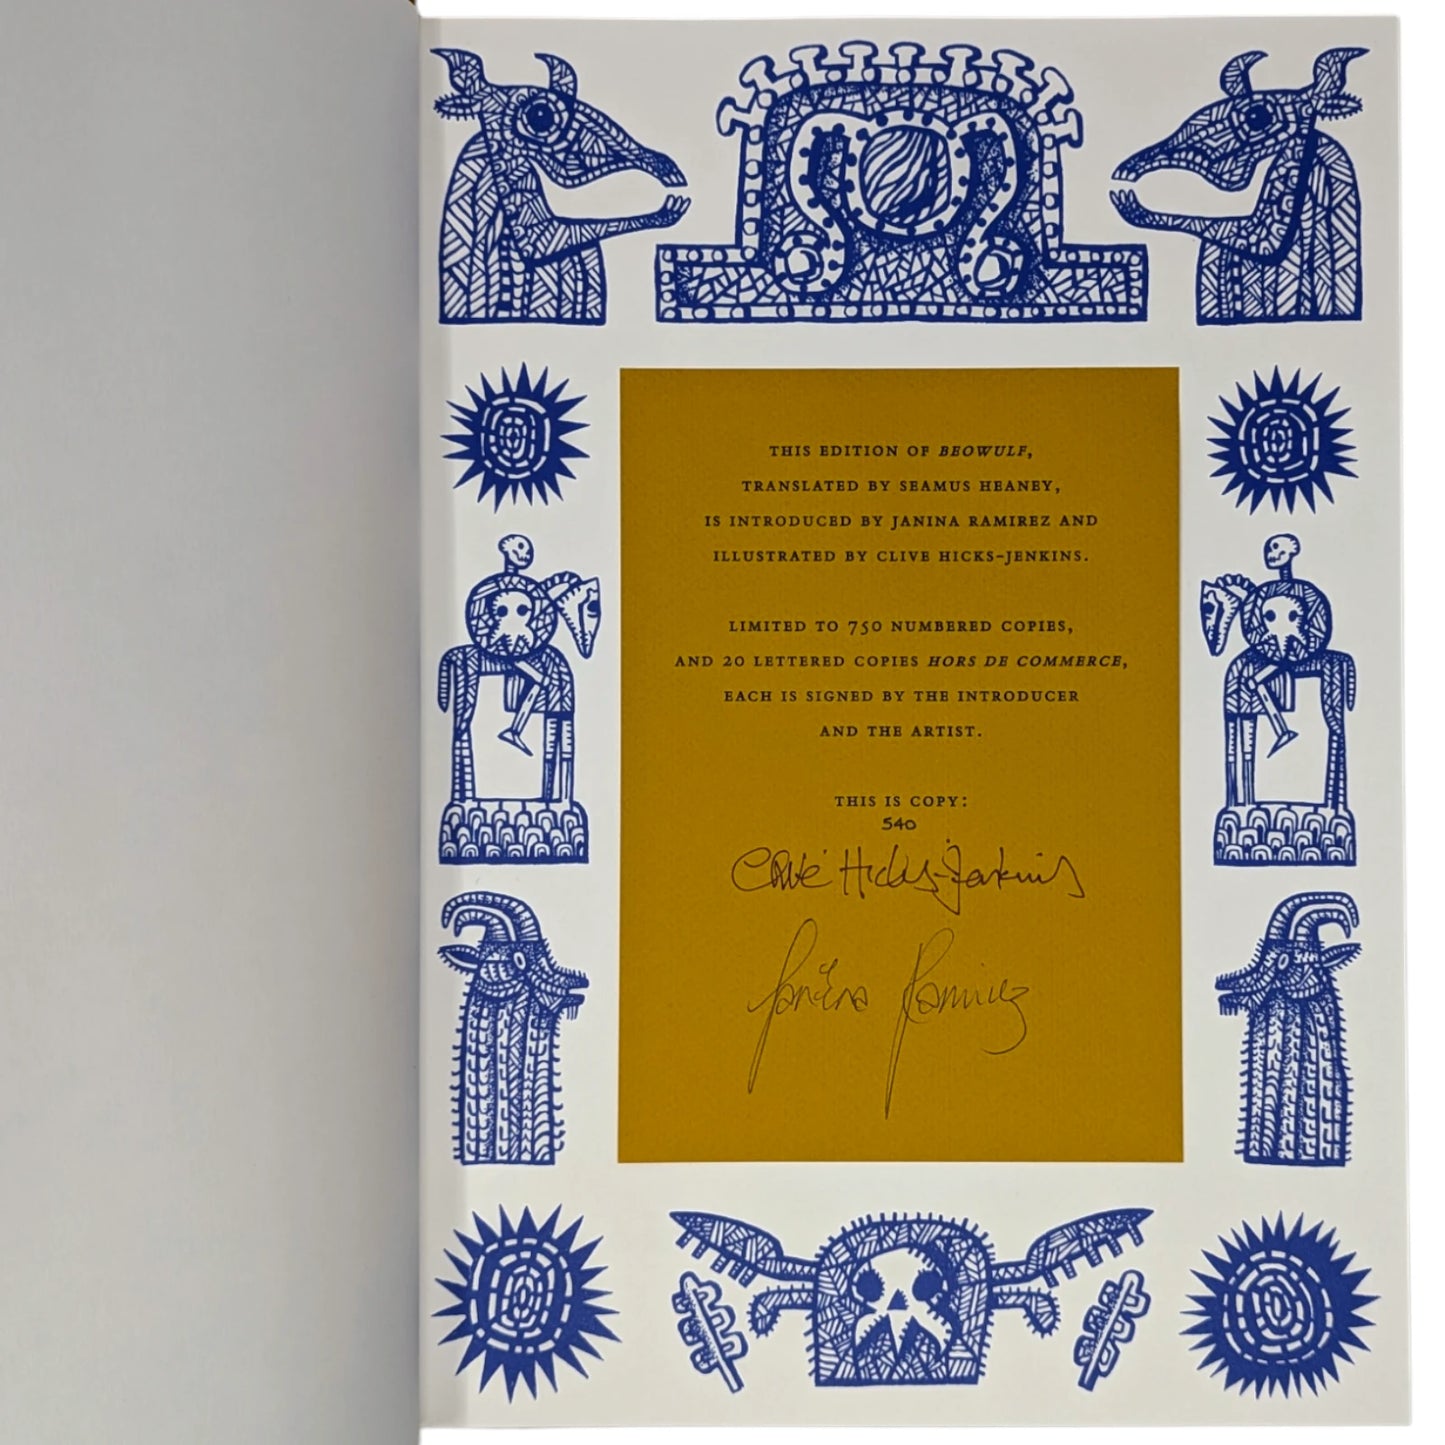 THIS EDITION OF BEOWULF,
TRANSLATED BY SEAMUS HEANEY,
IS INTRODUCED BY JANINA RAMIREZ AND
ILLUSTRATED BY CLIVE HICKS-JENKINS.
LIMITED TO 750 NUMBERED COPIES,
AND 20 LETTERED COPIES HORS DE COMMERCE,
EACH IS SIGNED BY THE INTRODUCER
AND THE ARTIST.
THIS IS COPY:
540
Clive Hicks-Jenkins
Janina Ramirez